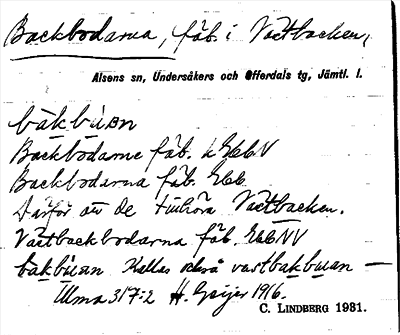 Backbodarna, fäb. i Västbacken,
Alsens sn, Undersåkers och Offerdals tg, Jämtl. l.
bakbuan
Backbodarne fäb.
Backbodarna fäb.
Därför att de tillhöra Västbacken.
Västbackbodarna fäb.
bakbuan. Kallas också vastbakbuan —
Ulma 317:2 H. Geijer 1916.
C. LINDBERG 1931.